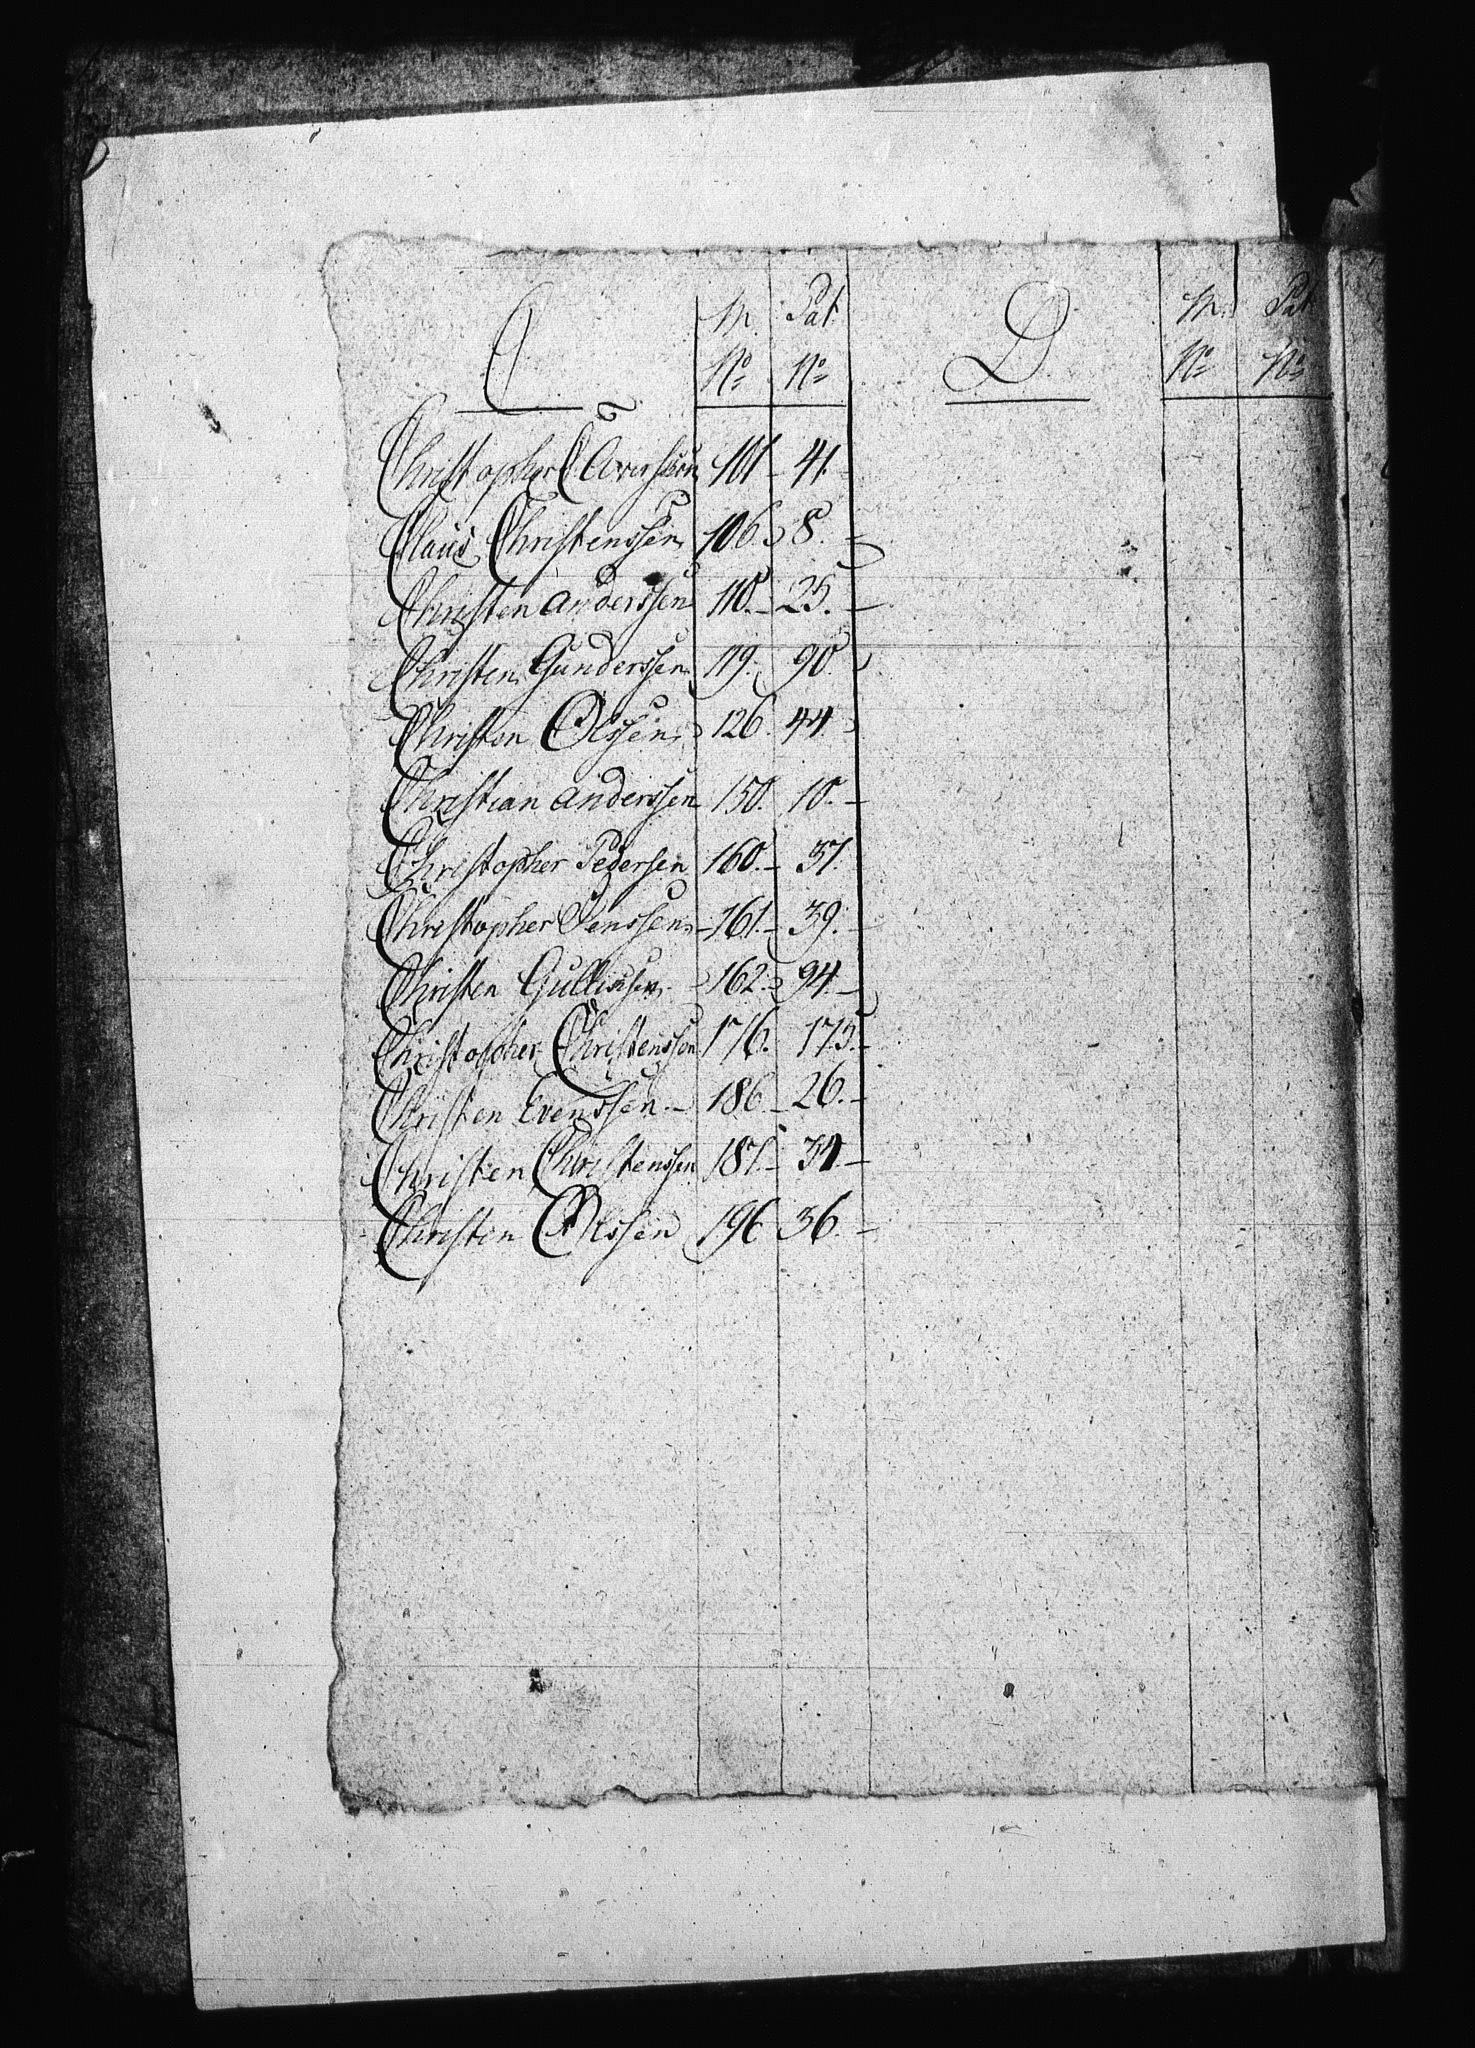 C. M. Pat.
No No
Christopher 101 41.
Claus Christenssen 106. 8.
Christen Anderssen 110. 25.
Christen Gunderssen 119. 90.
Christen Olssen 126. 44.
Christian Anderssen 150. 10.
Christopher Pedersen 160. 37.
Christopher Jenssen 161. 39.
Christen 162. 94.
Christopher Christenssen 176. 175.
Christen Evenssen 186. 26.
Christen Christenssen 187. 34.
Christen Olssen 196 36.
D. M. Pat
No No